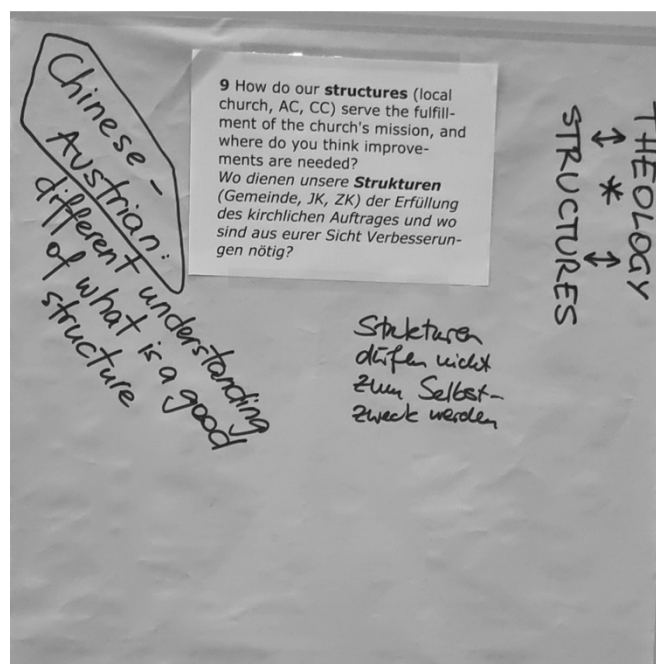 Chinese-
Austrian:
different understanding
of what is a good
structure
9 How do our structures (local
church, AC, CC) serve the fulfill-
ment of the church's mission, and
where do you think improve-
ments are needed?
Wo dienen unsere Strukturen
(Gemeinde, JK, ZK) der Erfüllung
des kirchlichen Auftrages und wo
sind aus eurer Sicht Verbesserun-
gen nötig?
Strukturen
dürfen nicht
zum Selbst-
zweck werden
THEOLOGY
↔ * ↔
STRUCTURES